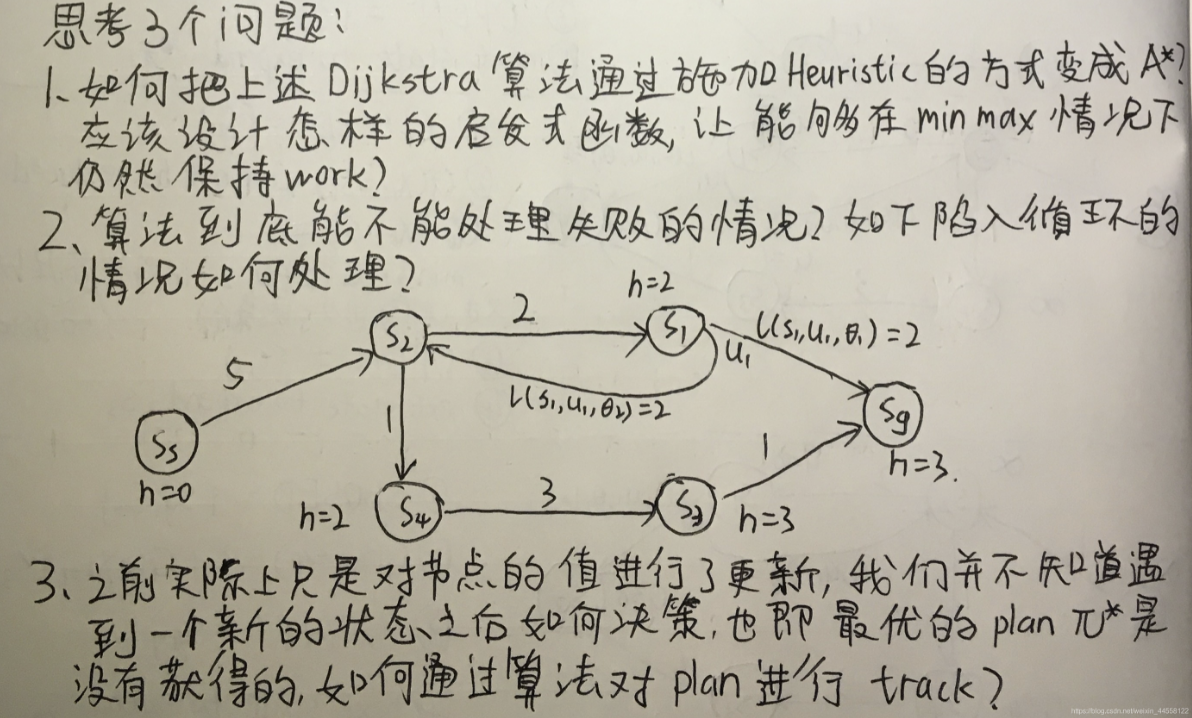 思考3个问题:
1、如何把上述Dijkstra算法通过施加Heuristic的方式变成A*?
应该设计怎样的启发式函数,让能够在min max情况下
仍然保持work?
2、算法到底能不能处理失败的情况?如下陷入循环的
情况如何处理?
h=2
S2
2
S1
L(s1,u1,θ1)=2
u1
5
L(s1,u1,θ2)=2
Sg
1
1
Ss
h=3.
h=0
h=2
S4
3
S3
h=3
3、之前实际上只是对节点的值进行了更新,我们并不知道遇
到一个新的状态之后如何决策,也即最优的plan π*是
没有获得的,如何通过算法对plan进行track?
https://blog.csdn.net/weixin_44558122